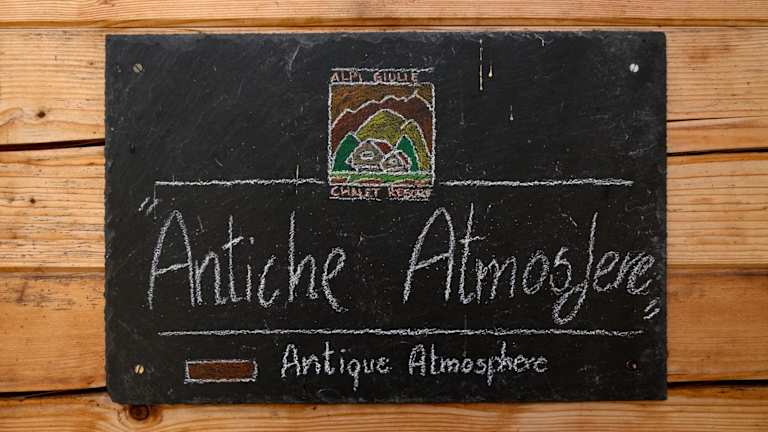 ALPI GIULIE
CHALET RESORT
"Antiche Atmosfere"
Antique Atmosphere